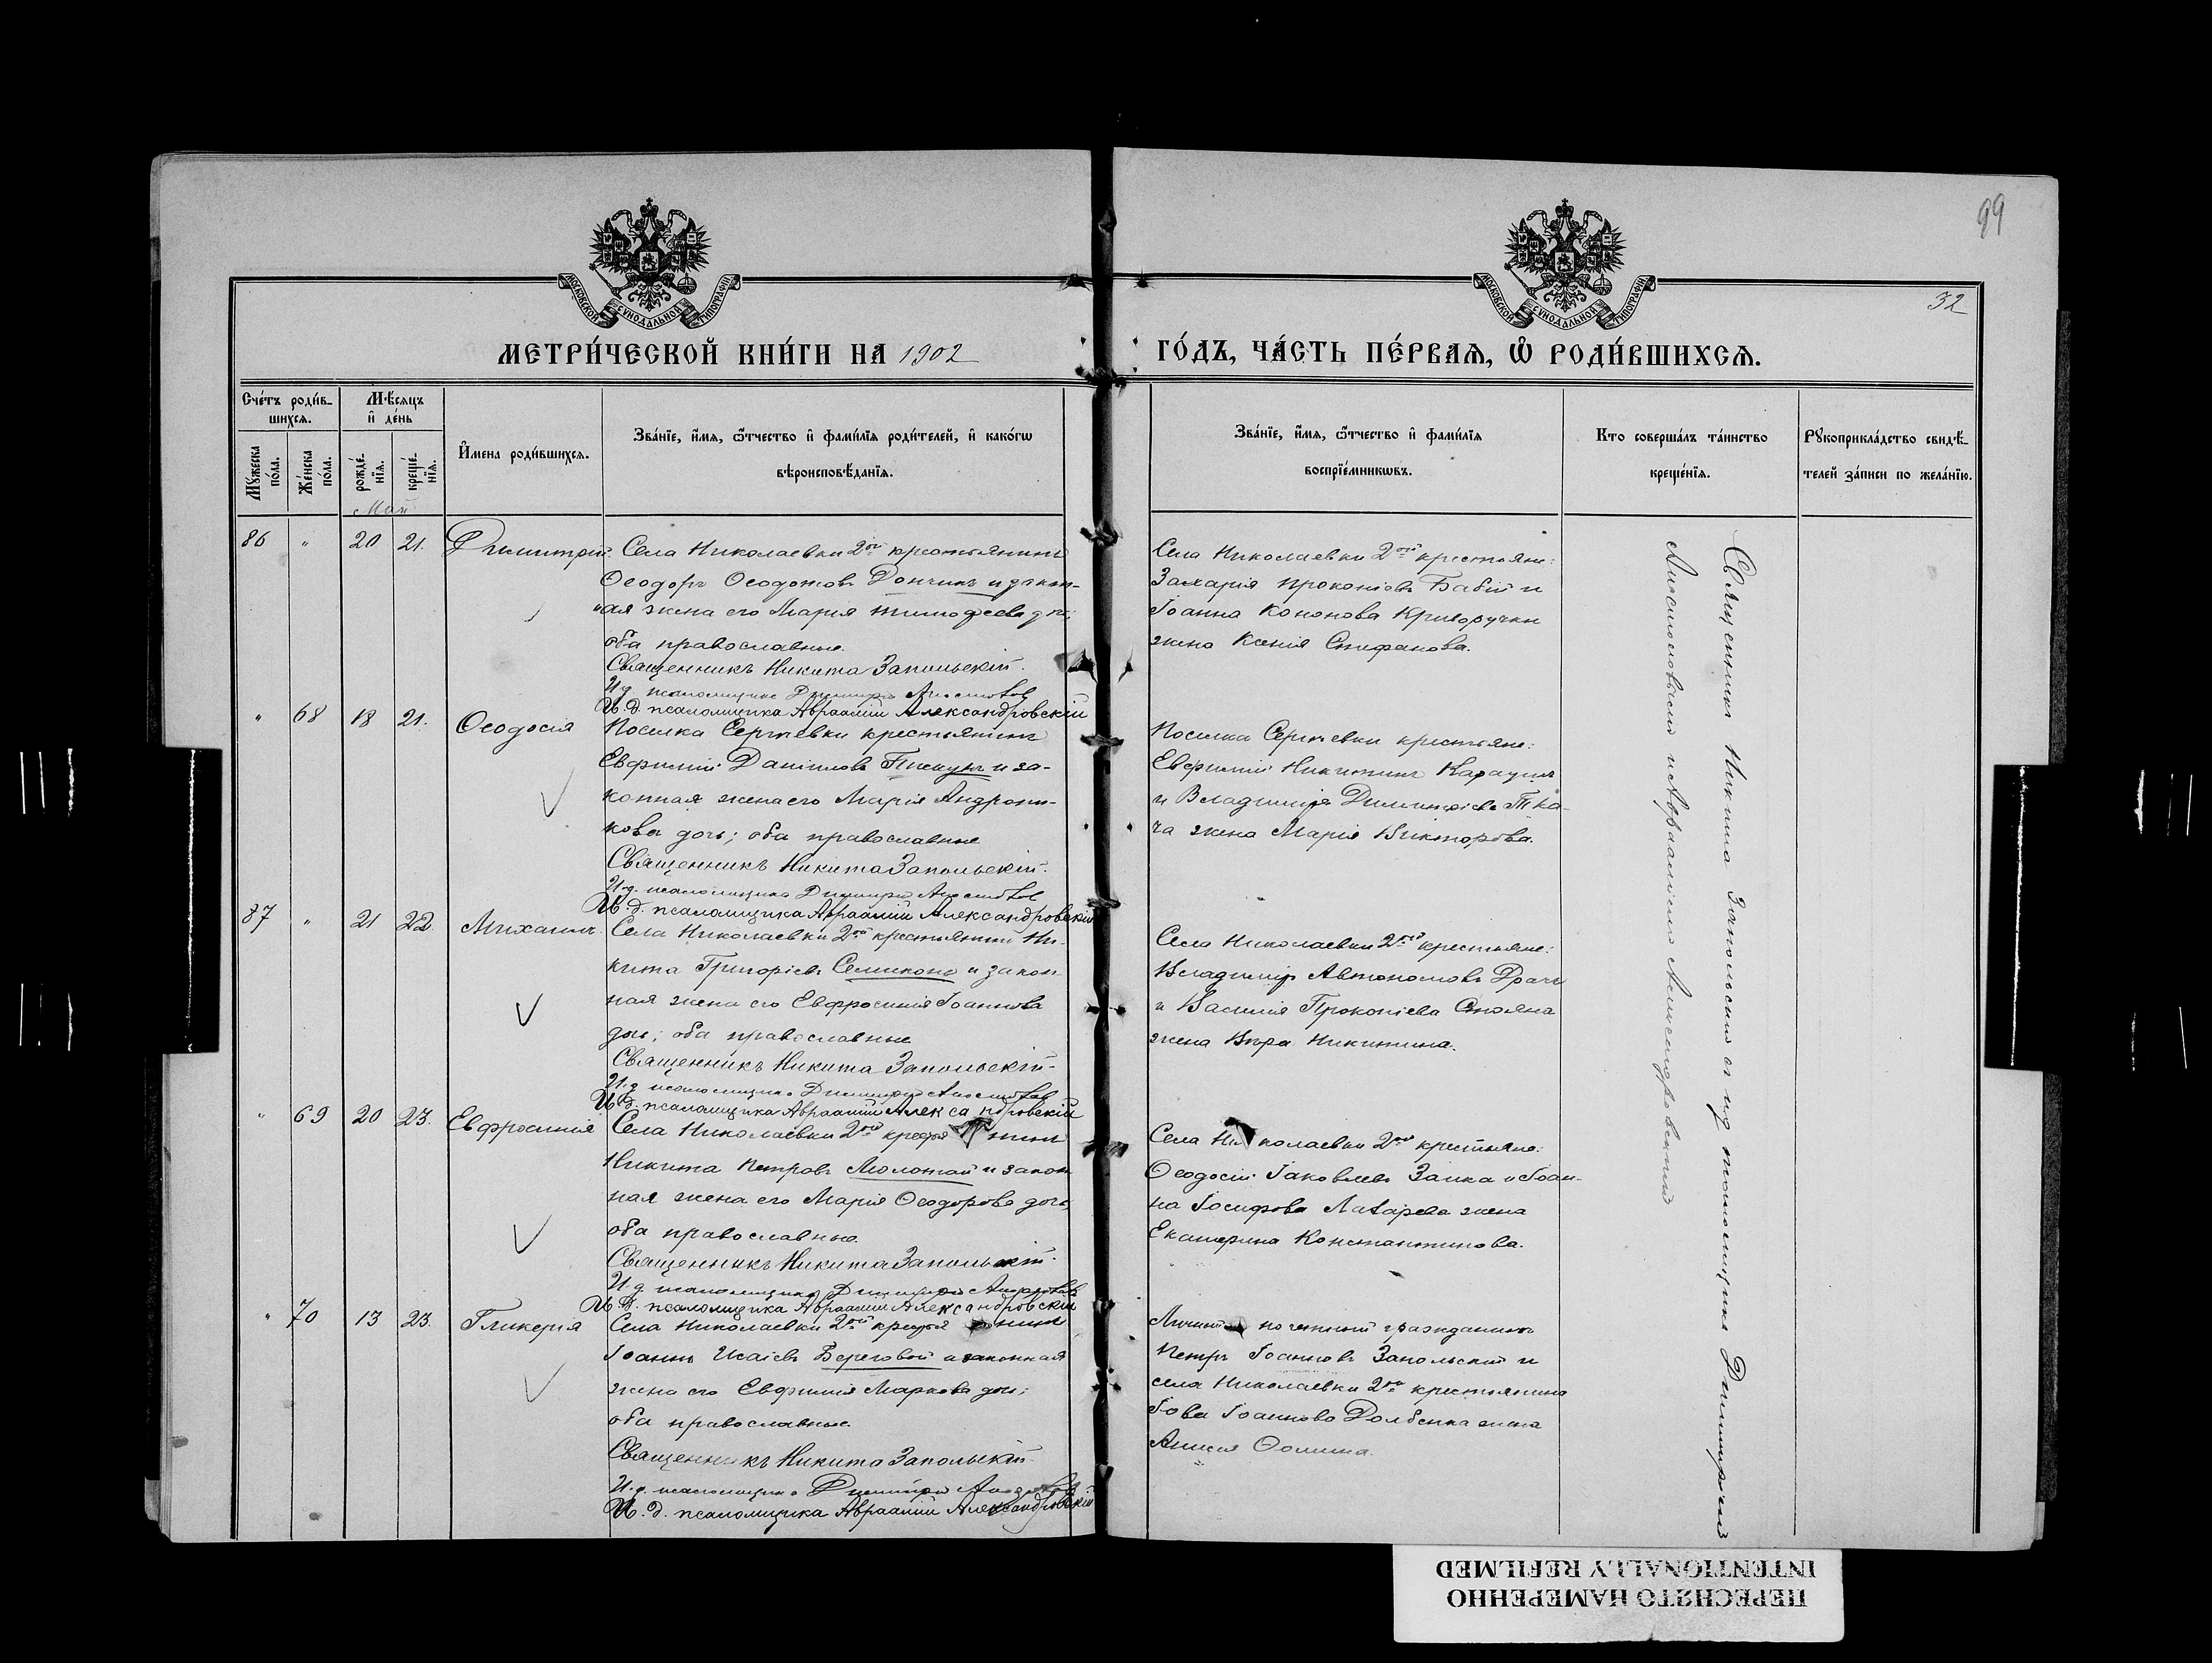 99
32
МОСКОВСКОЙ СУНОДАЛЬНОЙ ТИПОГРАФІИ
МОСКОВСКОЙ СУНОДАЛЬНОЙ ТИПОГРАФІИ
МЕТРИ́ЧЕСКОЙ КНИ́ГИ НА 1902 ГО́ДЪ, ЧА́СТЬ ПЕ́РВАЯ, Ѽ РОДИ́ВШИХСЯ.
Сче́тъ роди́в-
шихся.
Мѣ́сяцъ
и҆ де́нь
Мꙋ́жеска
по́ла.
Же́нска
по́ла.
рожде́-
нїя.
креще́-
нїя.
И҆мена роди́вшихся.
Зва́нїе, и҆́мя, ѻ҆́тчество и҆ фами́лїя роди́телей, и҆ како́гѡ
вѣроисповѣ́данїя.
Зва́нїе, и҆́мя, ѻ҆́тчество и҆ фами́лїя
воспрїе́мникѡвъ.
Кто соверша́лъ та́инство
креще́нїя.
Рꙋкоприкла́дство свидѣ́-
телей за́писи по жела́нїю.
Май
86 " 20 21. Димитрій
Села Николаевки 2ой крестьянинъ
Ѳеодоръ Ѳеодотовъ Дончикъ и закон-
ная жена его Марія Тимоѳеева дочь;
оба православные.
Священникъ Никита Запольскій.
И. д. псаломщика Димитрій
И. д. псаломщика Авраамій Александровскій
Села Николаевки 2ой крестьяне:
Захарія Прокопіевъ Бабій и
Іоанна Кононова Криворучки
жена Ксенія Стефанова.
" 68 18 21. Ѳеодосія
Поселка Сергѣевки крестьянинъ
Евфимій Даніиловъ Пискунъ и за-
конная жена его Марія Андрони-
кова дочь; оба православные
Священникъ Никита Запольскій.
И. д. псаломщика Димитрій
И. д. псаломщика Авраамій Александровскій
Поселка Сергѣевки крестьяне:
Евфимій Никитинъ
и Владиміра Димитріева Тка-
ча жена Марія Викторова.
87 " 21 22. Михаилъ
Села Николаевки 2ой крестьянинъ Ни-
кита Григоріевъ Семиконо и закон-
ная жена его Евфросинія Іоаннова
дочь; оба православные
Священникъ Никита Запольскій.
И. д. псаломщика Димитрій
И. д. псаломщика Авраамій Александровскій
Села Николаевки 2ой крестьяне:
Владиміръ Автономовъ Драчъ
и Василія Прокопіева Стояна
жена Вѣра Никитина.
" 69 20 23. Евфросинія
Села Николаевки 2ой крестьянинъ
Никита Петровъ Молотай и закон-
ная жена его Марія Ѳеодорова дочь,
оба православные.
Священникъ Никита Запольскій.
И. д. псаломщика Димитрій
И. д. псаломщика Авраамій Александровскій
Села Николаевки 2ой крестьяне:
Ѳеодосій Іаковлевъ Заика и Іоан-
на Іосифова Лазарева жена
Екатерина Константинова.
" 70 13 23. Гликерія
Села Николаевки 2ой крестьянинъ
Іоаннъ Исаіевъ Береговой и законная
жена его Евфимія Маркова дочь;
оба православные.
Священникъ Никита Запольскій
И. д. псаломщика Димитрій
И. д. псаломщика Авраамій Александровскій
Личный почетный гражданинъ
Петръ Іоанновъ Запольскій и
села Николаевки 2ой крестьянина
Іова Іоаннова Долбенка жена
Анисія Ѳомина.
Священникъ Никита Запольскій съ и. д. псаломщика Димитріемъ
и Аврааміемъ Александровскимъ
ПЕРЕСНЯТО НАМЕРЕННО
INTENTIONALLY REFILMED